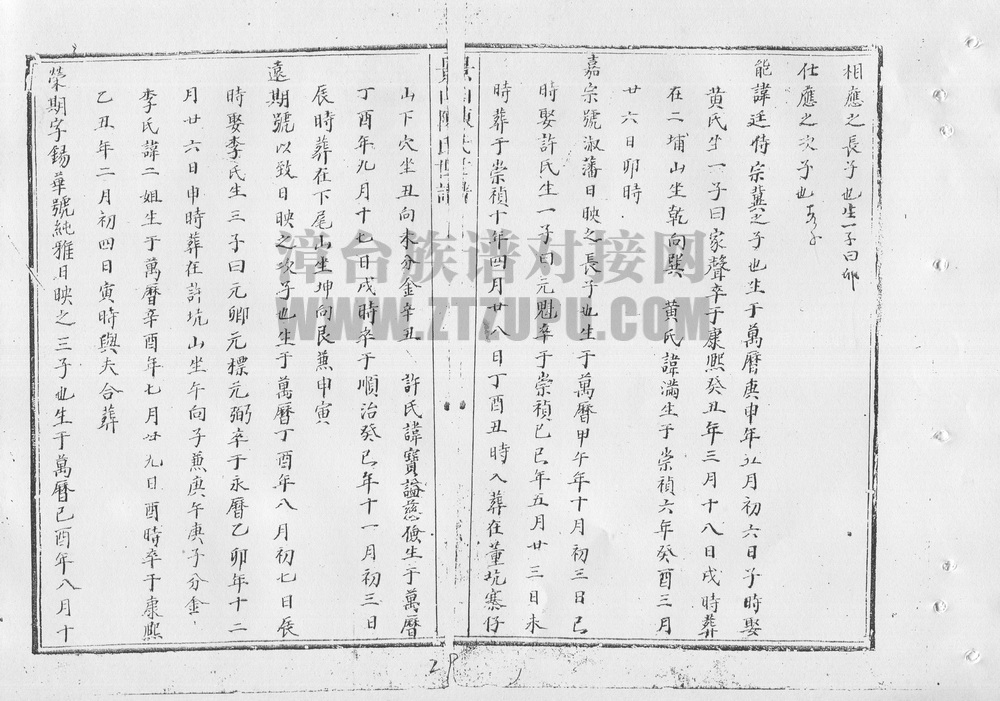 相應之長子也生一子曰卯
仕應之次子也
能諱廷侍宗冀之子也生于萬曆庚申年五月初六日子時娶
黄氏生一子曰家聲卒于康熙癸丑年三月十八日戌時葬
在二埔山坐乾向巽 黄氏諱滿生于崇禎六年癸酉三月
廿六日卯時
嘉宗號淑藩日映之長子也生于萬曆甲午年十月初三日巳
時娶許氏生一子曰元魁卒于崇禎己巳年五月廿三日未
時葬于崇禎十年四月廿八日丁酉丑時入葬在董坑寨仔
陳氏世譜
山下穴坐丑向未分金辛丑 許氏諱寶謚慈儉生于萬曆
丁酉年九月十七日戌時卒于順治癸巳年十一月初三日
辰時葬在下尾山坐坤向艮兼申寅
遠期號以致日映之次子也生于萬曆丁酉年八月初七日辰
時娶李氏生三子曰元卿元標元弼卒于永曆乙卯年十二
月廿六日申時葬在許坑山坐午向子兼庚午庚子分金
李氏諱二姐生于萬曆辛酉年七月廿九日酉時卒于康熙
乙丑年二月初四日寅時與夫合葬
榮期字錫華號純雅日映之三子也生于萬曆己酉年八月十
漳台族谱对接网
WWW.ZTZUPU.COM